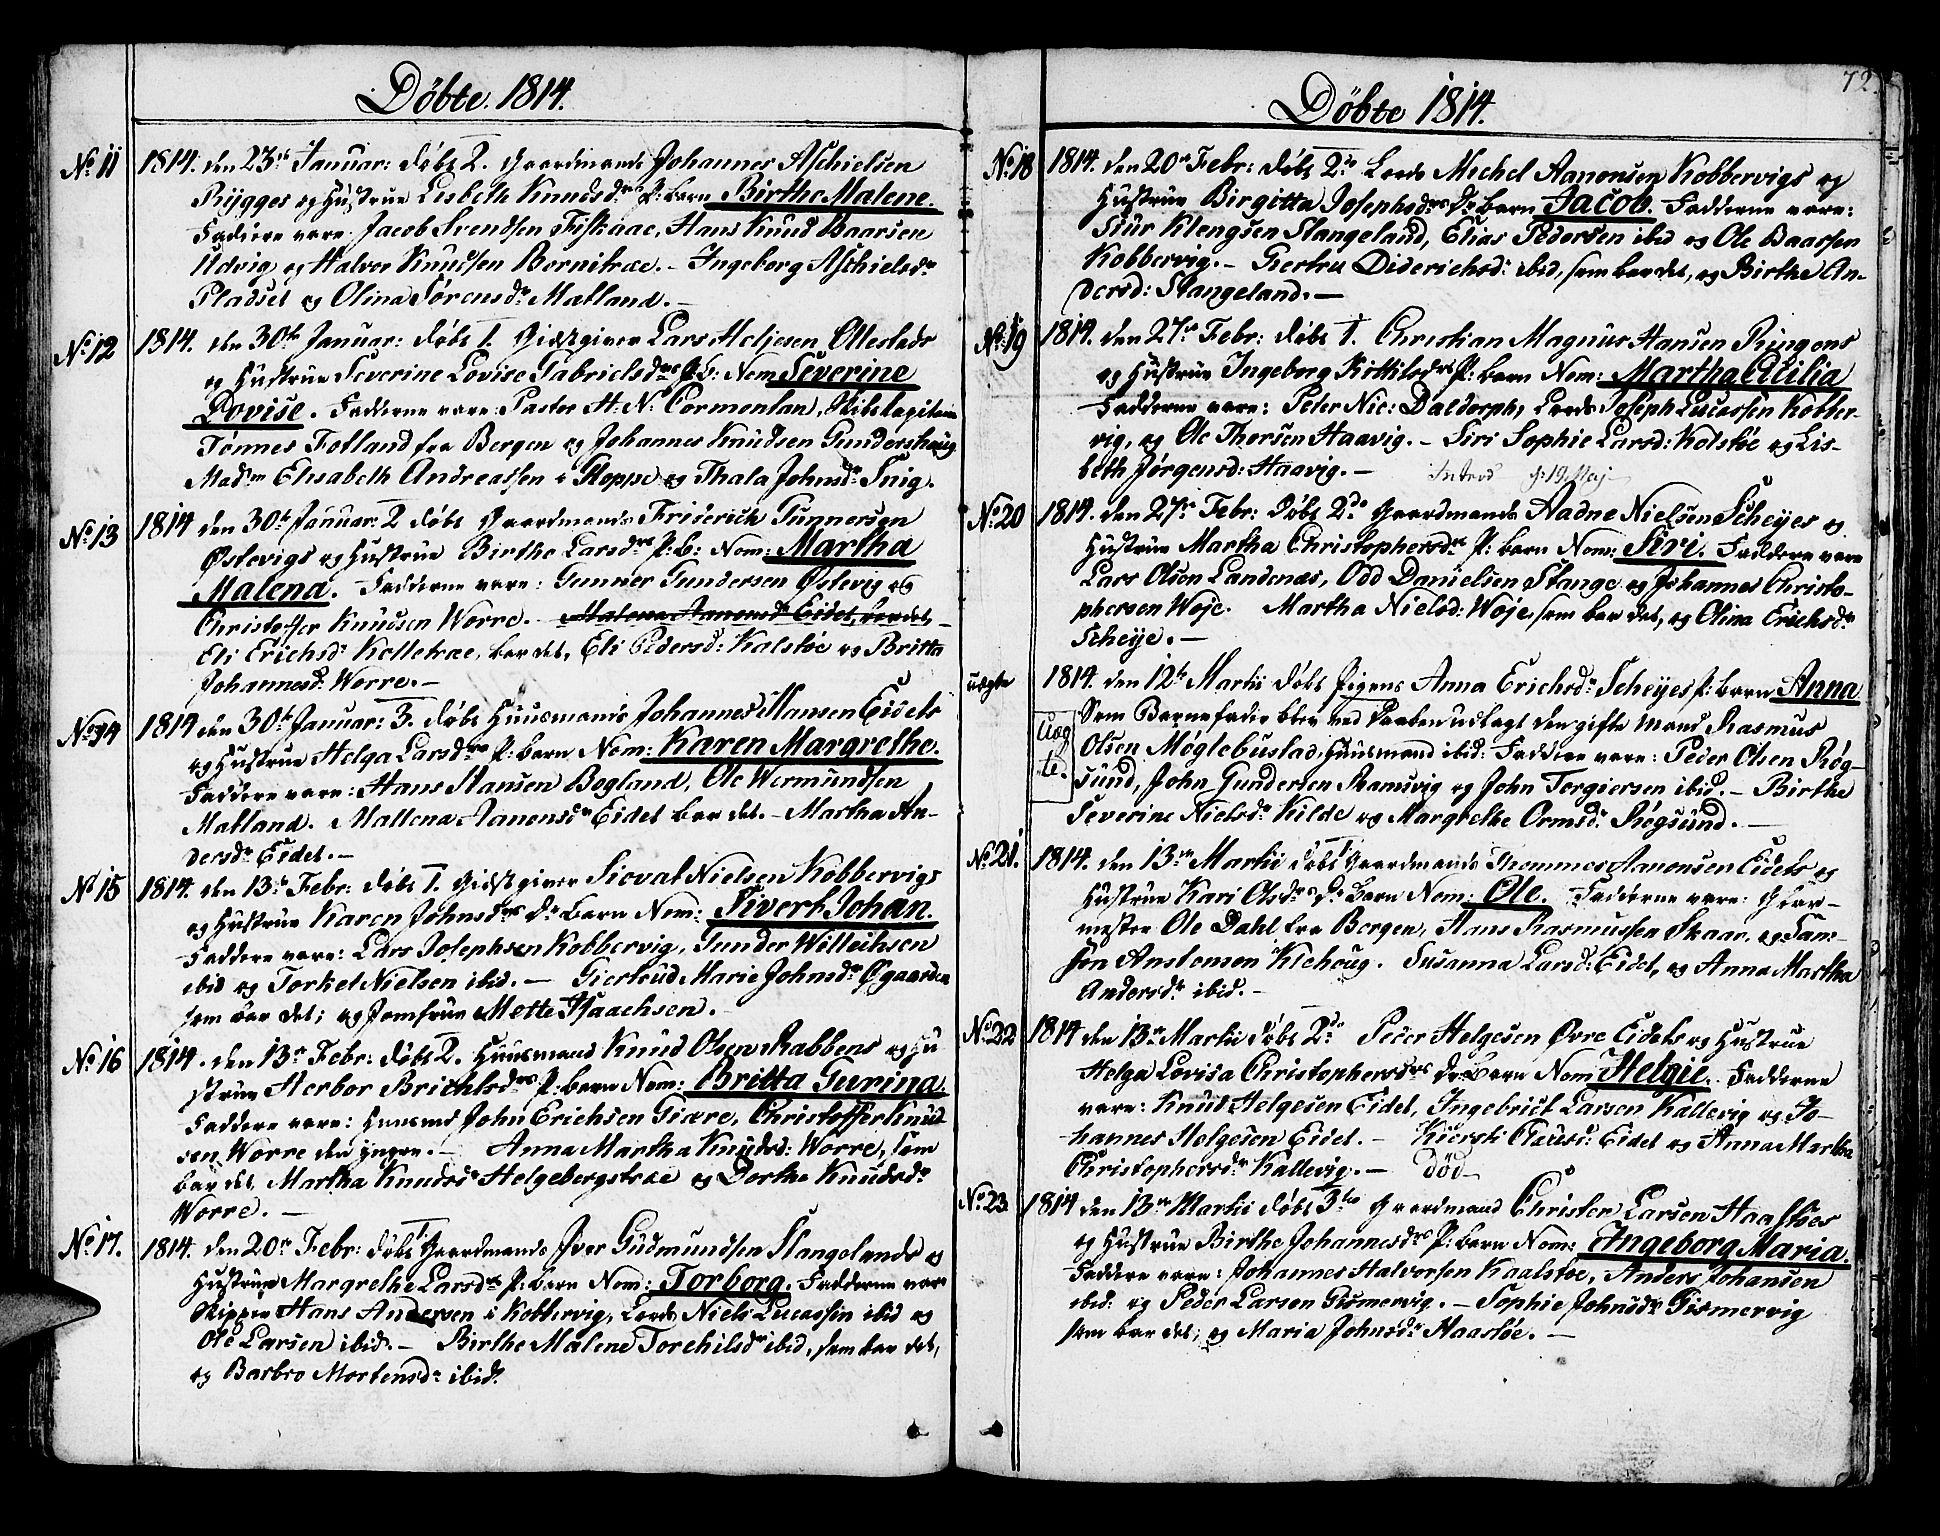 Döbte. 1814.
No 11 1814. den 23de Januar: döbt 2. Gaardmands Johannes Aschielsen
Rÿgges og Hustrue Lisbeth Knudsdrs P: barn Birthe Malene.
Faddere vare. Jacob Svendsen Fiskaae, Hans Knud Baarsen
Udvig og Halvor Knudsen Bornitræ. - Ingeborg Aschielsdr
Pladset og Olina Sørensdr Matland. -
No 12 1814. den 30te Januar: döbt 1. Gidstgiver Lars Heljesen Ollestads
og Hustrue Severine Lovise Gabrielsdrs P: b: Nom Severine
Lovise. Fadderne vare. Pastor H: N: Cormontan, Skibskapitain
Tönnes Fotland fra Bergen og Johannes Knudsen Gundershoug
Madm Elisabeth Andreassen i Koppe og Thala Johnsdr Snig.
No 13 1814 den 30te Januar: 2 döbt Gaardmands Friderich Gunnersen
Østevigs og Hustrue Birthe Larsdrs P: b: Nom: Martha
Malena. Fadderne vare: Gunner Gundersen Østevig og
Christoffer Knudsen Worre. - Malena Aanonsdr Eidet, bar det -
Eli Erichsdr Kolletræ, bar det, Eli Pedersd: Kalstøe og Britta
Johannesd: Worre. -
No 14 1814 den 30te Januar: 3. döbt Huusmands Johannes Hansen Eidets
og Hustrue Helga Larsdrs P: barn Nom: Karen Margrethe.
Faddere vare: Hans Hansen Bogland, Ole Wermundsen
Matland. Mallena Aanonsdr Eidet bar det. - Martha An-
dersdr Eidet. -
No 15 1814. den 13de Febr: döbt 1. Gidstgiver Sicval Nielsen Kobbervigs
og Hustrue Karen Johnsdrs P: barn Nom: Sivert Johan.
Faddere vare: Lars Josephsen Kobbervig, Gunder Willeihsen
ibid og Torkel Nielsen ibid. - Giertrud Marie Johnsdr Øgaarden
som bar det; og Jomfrue Mette Isaachsen.
No 16 1814. den 13de Febr: döbt 2. Huusmand Knud Olsen Rabbens og Hu
strue Herbor Brichtsdrs P: barn Nom: Britta Gurina.
Faddere vare: Huusmd John Erichsen Giære, Christoffer Knud
sen Worre den ÿngre. - Anna Martha Knudsd: Worre, som
bar det Martha Knudsdr Helgebergstræe og Dorthe Knudsdr
Worre. -
No 17. 1814. den 20de Febr: döbt 1 Gaardmands Iver Gudmundsen Stangelands og
Hustrue Margrethe Larsdrs P: barn Nom: Torborg. Fadderne var
Skipper Hans Andersen i Kobbervig, Lods Niels Lucassen ibid og
Ole Larsen ibid. - Birthe Malene Torchilsdr ibid, som bar det,
og Barbro Mortensdr ibid.
72.
Döbte 1814.
No 18 1814. den 20de Febr: döbt 2do Lods Michel Aanonsen Kobbervigs og
Hustrue Birgitta Josephsdrs P: barn Jacob. Fadderne vare:
Siur Klengsen Stangeland, Elias Pedersen ibid og Ole Baarsen
Kobbervig. - Giertru Diderichsd: ibid, som bar det, og Birthe An-
dersd: Stangeland. -
No 19 1814. den 27de Febr: döbt 1. Christian Magnus Hansen Ringens
og Hustrue Ingeborg Kittilsdrs P: barn Nom: Martha Cicilia
Faddere vare: Peter Nic: Daldorph, Lods Joseph Lucassen Kobber-
vig, og Ole Thorsen Haavig. - Siri Sophie Larsd: Kolstøe og Lis-
beth Jørgensd: Haavig. - Introd d: 19 Maj -
No 20 1814. den 27de Febr: döbt 2do Gaardmands Aadne Nielsen Scheÿes og
Hustrue Martha Christophersdrs P: barn Nom: Siri. Faddere vare
Lars Olsen Landenæs, Odd Danielsen Stange og Johannes Christo-
phersen Woje. Martha Nielsd: Woje, som bar det, og Olina Erichsdr
Scheÿe. -
uægte 1814. den 12te Martii döbt Pigens Anna Erichsdr Scheÿes P: barn Anna
Uæg
te. Som Barnefader blev ved Daaben udlagt den gifte Mand Rasmus
Olsen Møglebustad, Huusmand ibid: Faddere vare: Peder Olsen Røg-
sund, John Gundersen Ramsvig og John Torgiersen ibid. - Birthe
Severine Nielsdr Kilde og Margrethe Ormsdr Røgsund. -
No 21. 1814. den 13de Martii döbt 1 Gaardmands Thommes Aanonsen Eidets og
Hustrue Kari Olsdrs P: barn Nom: Ole. Fadderne vare: Glar-
mester Ole Dahl fra Bergen, Hans Rasmussen Skaar, og Sam-
son Anstensen Klehoug. Susanna Larsd: Eidet, og Anna Martha
Andersdr ibid. -
No 22 1814 den 13de Martii döbt 2do Peder Helgesen Øvre Eidets og Hustrue
Helga Lovisa Christophersdrs P: Barn Nom Helgie. Fadderne
vare: Knud Helgesen Eidet, Ingebrict Larsen Kallevig og Jo-
hannes Helgesen Eidet. - Kiersti Clausd: Eidet og Anna Martha
Christophersdr Kallevig. - död
No 23 1814 den 13de Martii döbt 3tio Gaardmand Christen Larsen Haastøes
og Hustrue Birthe Johannesdrs P: barn Nom: Ingeborg Maria.
Faddere vare: Johannes Halvorsen Kaalstøe, Anders Johansen
ibid: og Peder Larsen Gismervig. - Sophie Johnsdr Gismervig
som bar det; og Maria Johnsdr Haastøe. -